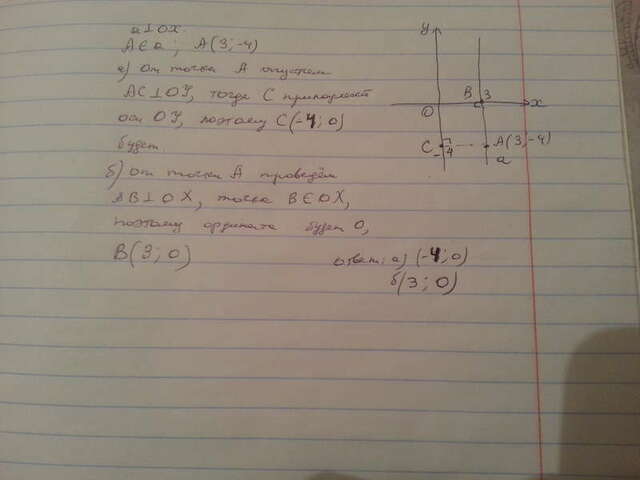 a⊥OX.
A∈a; A(3;-4)
а) От точки A опустим
AC⊥OY, тогда C принадлежит
оси OY, поэтому C(-4;0)
будет.
б) от точки A проведём
AB⊥OX, точка B∈OX,
поэтому ордината будет 0,
B(3;0)
ответ: а) (-4;0)
б(3;0)
y
B 3
O x
C -4 A(3;-4)
a